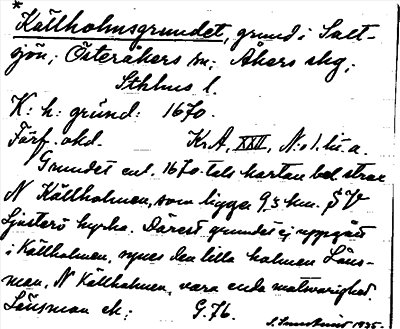 * Källholmsgrundet, grund i Salt-
sjön; Österåkers sn; Åkers skg;
Sthlms l.
K: h: grúnd: 1670.
Förf. okd. Kr.A. XXII, N:o 1. lit. a.
Grundet enl. 1670-tals kartan bel. strax
N Källholmen, som ligger 9,5 km. SV
Ljusterö kyrka. Därest grundet ej uppgått
i Källholmen, synes den lilla holmen Läns-
man, N Källholmen, vara enda motsvarighet.
Länsman ek: G. 76.
1935